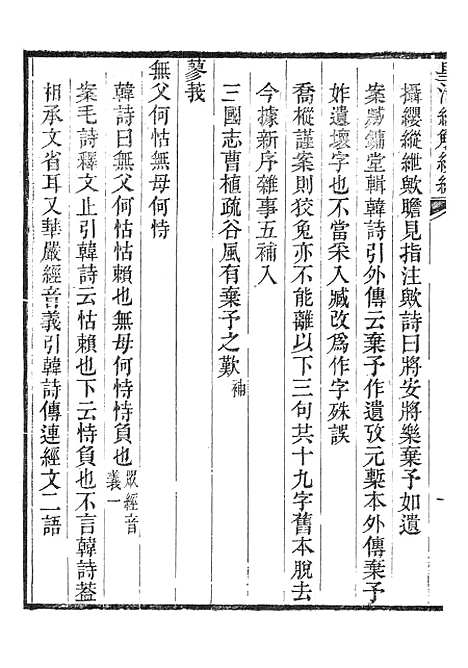 皇清經解續編
攝纓縱紲歟瞻見指注歟詩曰將安將樂棄予如遺
案臧鏞堂輯韓詩引外傳云棄予作遺攷元槧本外傳棄予
妰遺壞字也不當采入臧改爲作字殊誤
喬樅謹案則狡兔亦不能離以下三句共十九字舊本脫去
今據新序雜事五補入
三國志曹植疏谷風有棄予之歎補
蓼莪
無父何怙無母何恃
韓詩曰無父何怙怙賴也無母何恃恃負也眾經音義一
案毛詩釋文止引韓詩云怙賴也下云恃負也不言韓詩蓋
相承文省耳又華嚴經音義引韓詩傳連經文二語